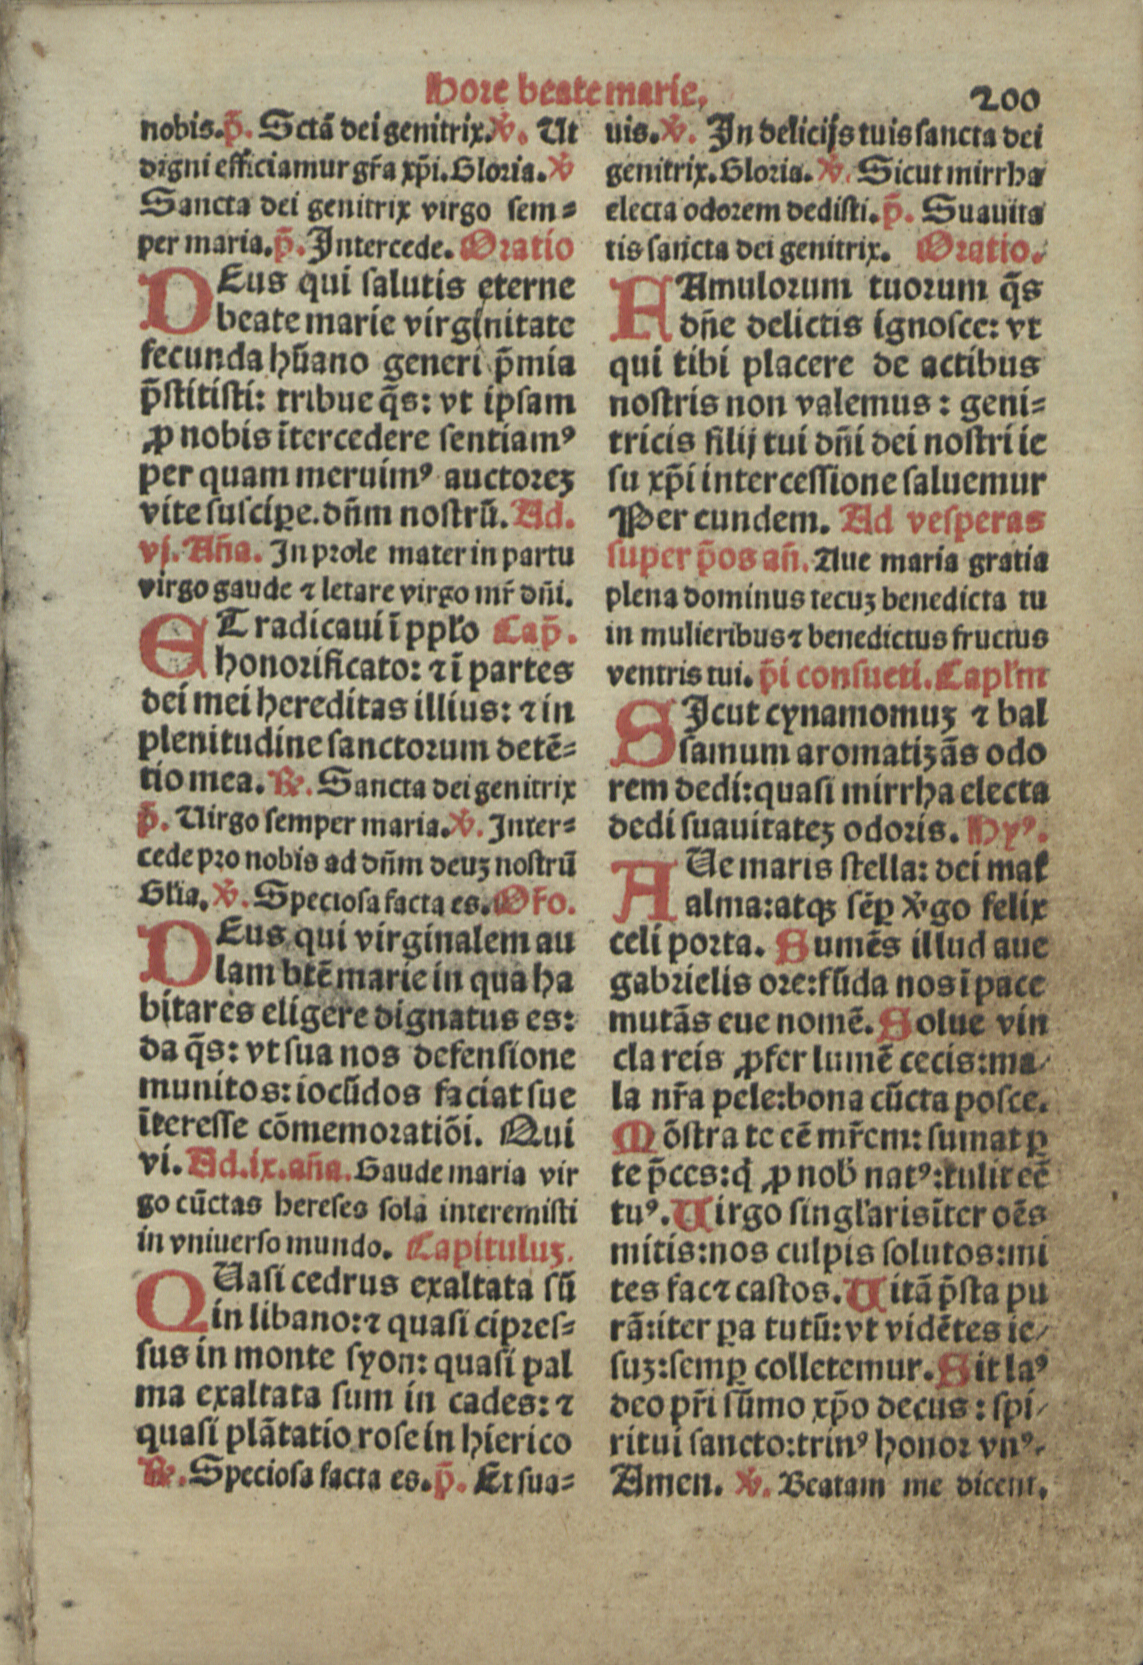 Hore beate marie.
200
nobis. p̄. Sctā dei genitrix. ꝟ. Ut
digni efficiamur gr̄a xp̄i. Gloria. ꝟ
Sancta dei genitrix virgo sem⸗
per maria. p̄. Intercede. Oratio
DEus qui salutis eterne
beate marie virginitate
fecunda hūano generi p̄mia
p̄stitisti: tribue q̄s: vt ipsam
ꝓ nobis ītercedere sentiamꝰ
per quam meruimꝰ auctorez
vite suscipe. dn̄m nostrū. Ad.
vj. An̄a. In prole mater in partu
virgo gaude ⁊ letare virgo mr̄ dn̄i.
ET radicaui ī pplo Cap̄.
honorificato: ⁊ ī partes
dei mei hereditas illius: ⁊ in
plenitudine sanctorum detē⸗
tio mea. ℟. Sancta dei genitrix
p̄. Uirgo semper maria. ꝟ. Inter⸗
cede pro nobis ad dn̄m deuz nostrū
Glia. ꝟ. Speciosa facta es. Oro.
DEus qui virginalem au
lam btē marie in qua ha
bitares eligere dignatus es:
da q̄s: vt sua nos defensione
munitos: iocūdos faciat sue
īteresse cōmemoratiōi. Qui
vi. Ad. ix. an̄a. Gaude maria vir
go cūctas hereses sola interemisti
in vniuerso mundo. Capituluz.
QUasi cedrus exaltata sū
in libano: ⁊ quasi cipres⸗
sus in monte syon: quasi pal
ma exaltata sum in cades: ⁊
quasi plātatio rose in hierico
℟. Speciosa facta es. p̄. Et sua⸗
uis. ꝟ. In delicijs tuis sancta dei
genitrix. Gloria. ꝟ. Sicut mirrha
electa odorem dedisti. p̄. Suauita
tis sancta dei genitrix. Oratio.
FAmulorum tuorum q̄s
dn̄e delictis ignosce: vt
qui tibi placere de actibus
nostris non valemus: geni⸗
tricis filij tui dn̄i dei nostri ie
su xp̄i intercessione saluemur
Per eundem. Ad vesperas
super p̄os an̄. Aue maria gratia
plena dominus tecuz benedicta tu
in mulieribus ⁊ benedictus fructus
ventris tui. p̄i consueti. Caplm
SIcut cynamomuz ⁊ bal
samum aromatizās odo
rem dedi: quasi mirrha electa
dedi suauitatez odoris. Hyꝰ.
AUe maris stella: dei mat̄
alma: atqꝫ sēꝑ ꝟgo felix
celi porta. Sumēs illud aue
gabrielis ore: fūda nos ī pace
mutās eue nomē. Solue vin
cla reis ꝓfer lumē cecis: ma/
la nr̄a pele: bona cūcta posce.
Mōstra te eē mr̄em: sumat ꝑ
te p̄ces: q̇ ꝓ nob̄ natꝰ: tulit eē
tuꝰ. Uirgo singlaris īter oēs
mitis: nos culpis solutos: mi
tes fac ⁊ castos. Uitā p̄sta pu
rā: iter ꝑa tutū: vt vidētes ie/
suz: semꝑ colletemur. Sit laꝰ
deo pr̄i sūmo xp̄o decus: spi/
ritui sancto: trinꝰ honor vnꝰ.
Amen. ꝟ. Beatam me dicent.